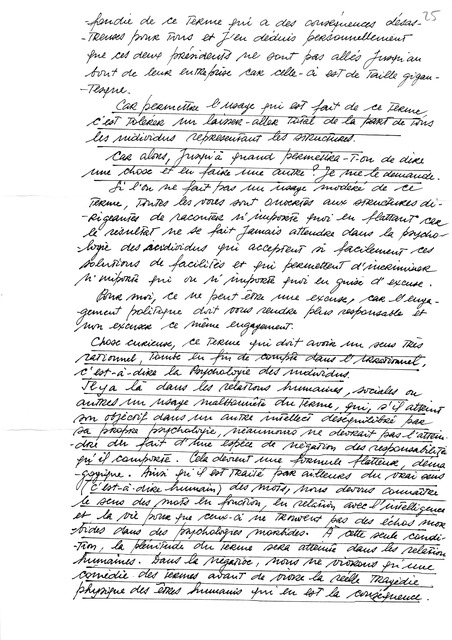 25
-fondie de ce terme qui a des conséquences désas-
treuses pour tous et j'en déduis personnellement
que ces deux présidents ne sont pas allés jusqu'au
bout de leur entreprise car celle-ci est de taille gigan-
tesque.
Car permettre l'usage qui est fait de ce terme,
c'est tolérer un laisser-aller total de la part de tous
les individus représentant les structures.
Car alors, jusqu'à quand permettra-t-on de dire
une chose et en faire une autre? Je me le demande.
Si l'on ne fait pas un usage modéré de ce
terme, toutes les voies sont ouvertes aux structures di-
rigeantes de raconter n'importe quoi en flattant car
le résultat ne se fait jamais attendre dans la psycho-
logie des individus qui acceptent si facilement ces
solutions de facilités et qui permettent d'incriminer
n'importe qui ou n'importe quoi en guise d'excuse.
Pour moi, ce ne peut être une excuse, car l'enga-
gement politique doit vous rendre plus responsable et
non excuser ce même engagement.
Chose curieuse, ce terme qui doit avoir un sens très
rationnel, tombe en fin de compte dans l'irrationnel,
c'est-à-dire la Psychologie des individus.
Il y a là dans les relations humaines, sociales ou
autres un usage malhonnête du terme, qui, s'il atteint
son objectif dans un autre intellect déséquilibré par
sa propre psychologie, néanmoins ne devrait pas l'atten-
dre du fait d'une espèce de négation des responsabilités
qu'il comporte. Cela devient une formule flatteur, déma
gogique. Ainsi qu'il est traité par ailleurs du vrai sens
(c'est-à-dire humain) des mots, nous devons connaître
le sens des mots en fonction, en relation avec l'intelligence
et la vie pour que ceux-ci ne trouvent pas des échos mor
bides dans des psychologies morbides. A cette seule condi-
tion, la plénitude du terme sera atteinte dans les relations
humaines. Dans la négative, nous ne vivrons qu'une
comédie des termes avant de vivre la réelle tragédie
physique des êtres humains qui en est la conséquence.